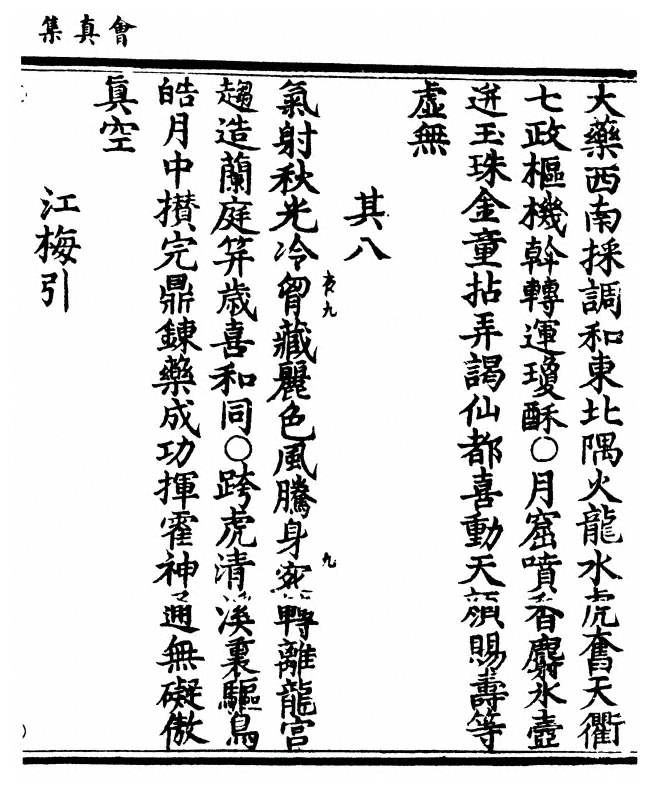 會真集
大藥西南採調和東北隅火龍水虎奮天衢
七政樞機斡轉運瓊酥〇月窟噴香麝氷壺
迸玉珠金童拈弄謁仙都喜動天顏賜壽等
虛無
其八
氣射秋光冷胷藏麗色風騰身轉離龍宮
趨造蘭庭筭歲喜和同〇跨虎清溪裏驅烏
皓月中攅完鼎鍊藥成功揮霍神通無礙傲
眞空
江梅引